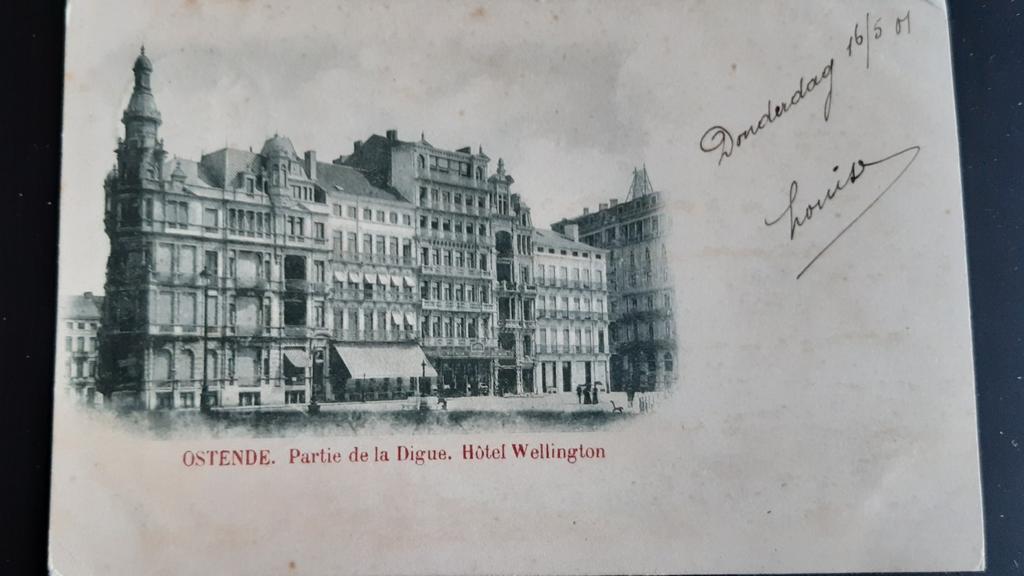 Donderdag 16/5 01
Louise
OSTENDE. Partie de la Digue. Hôtel Wellington